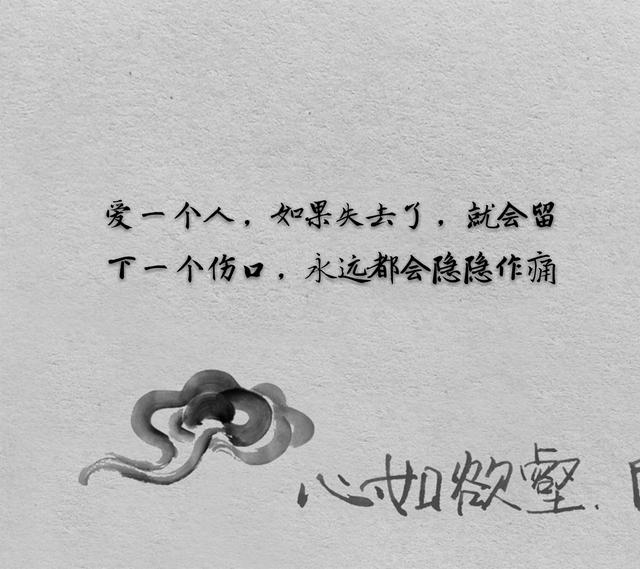 爱一个人，如果失去了，就会留
下一个伤口，永远都会隐隐作痛
心如欲壑.